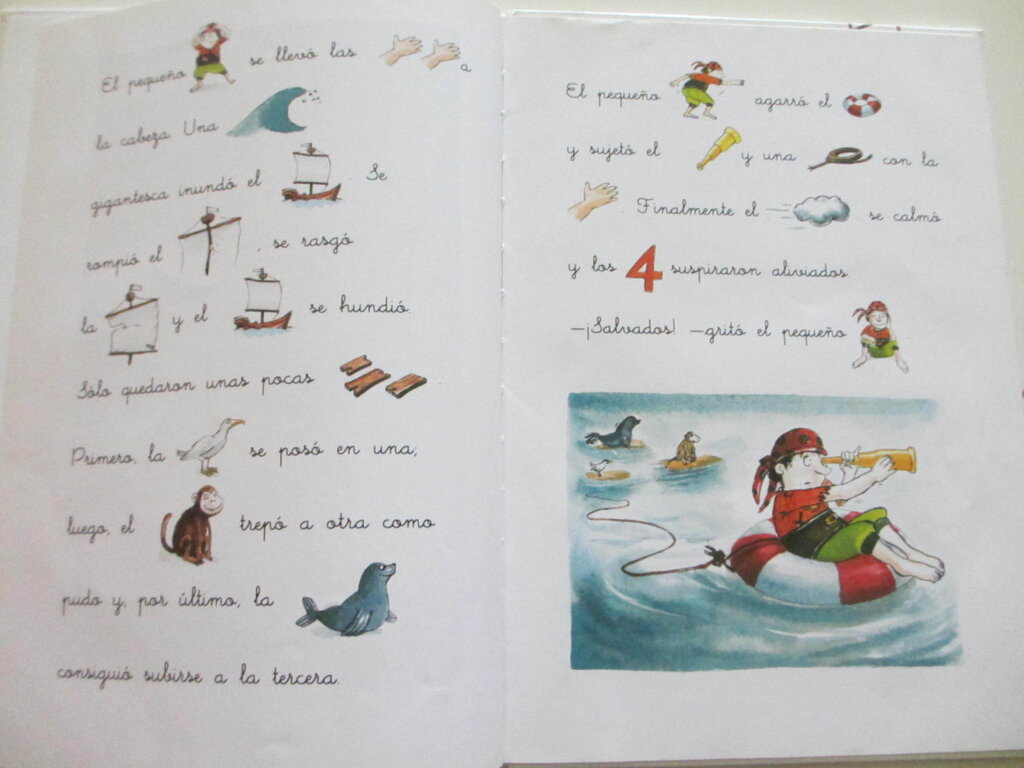 El pequeño se llevó las a
la cabeza Una
gigantesca inundó el . Se
rompió el , se rasgó
la y el se hundió.
Sólo quedaron unas pocas .
Primero, la se posó en una;
luego, el trepó a otra como
pudo y, por último, la
consiguió subirse a la tercera.
El pequeño agarró el
y sujetó el y una con la
. Finalmente el se calmó
y los 4 suspiraron aliviados.
—¡Salvados! —gritó el pequeño .